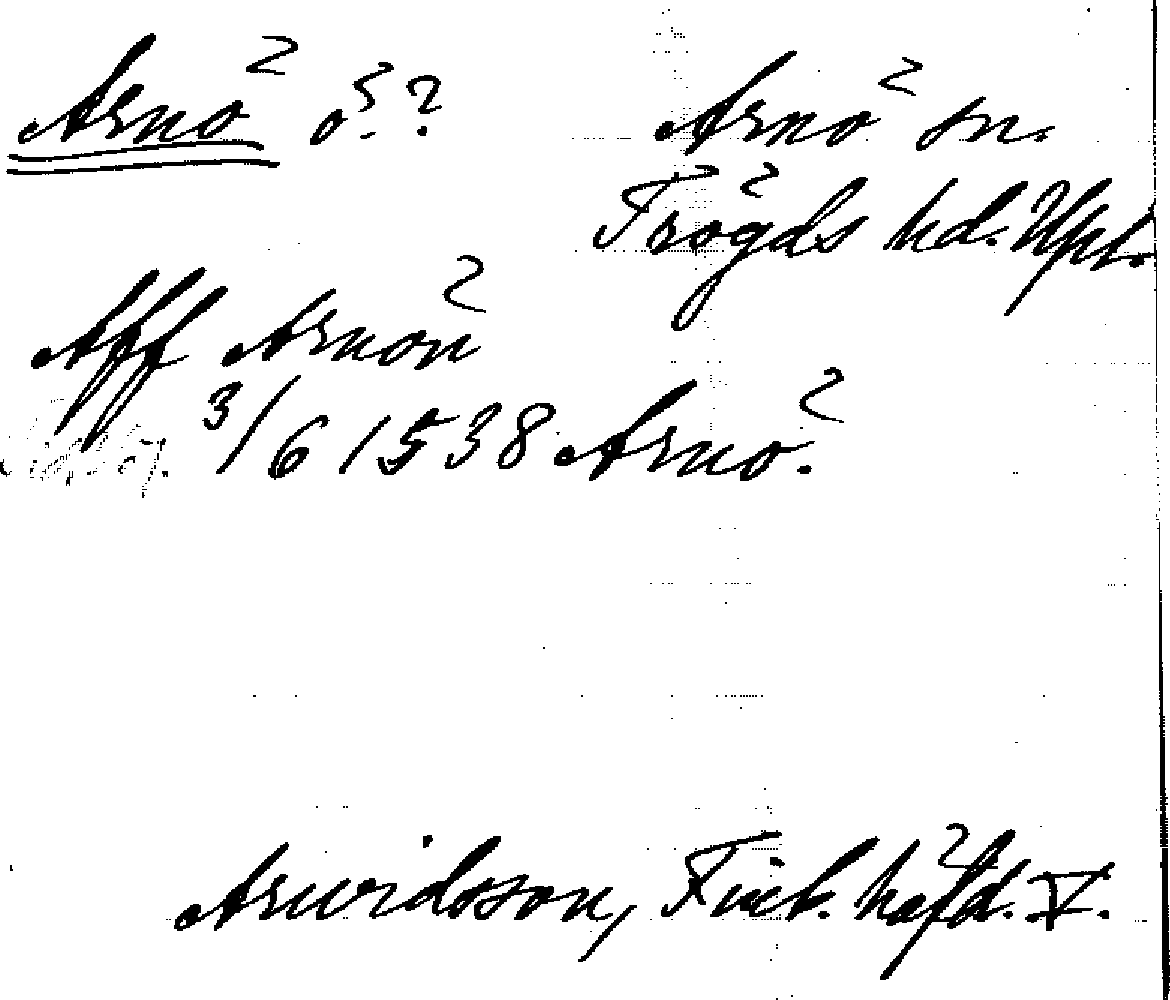 Arnö ö.?
Arnö sn.
Trögds hd. Uppl.
Aff Arnön
3/6 1538 Arnö.
Arwidsson, Finl. häfd. V.